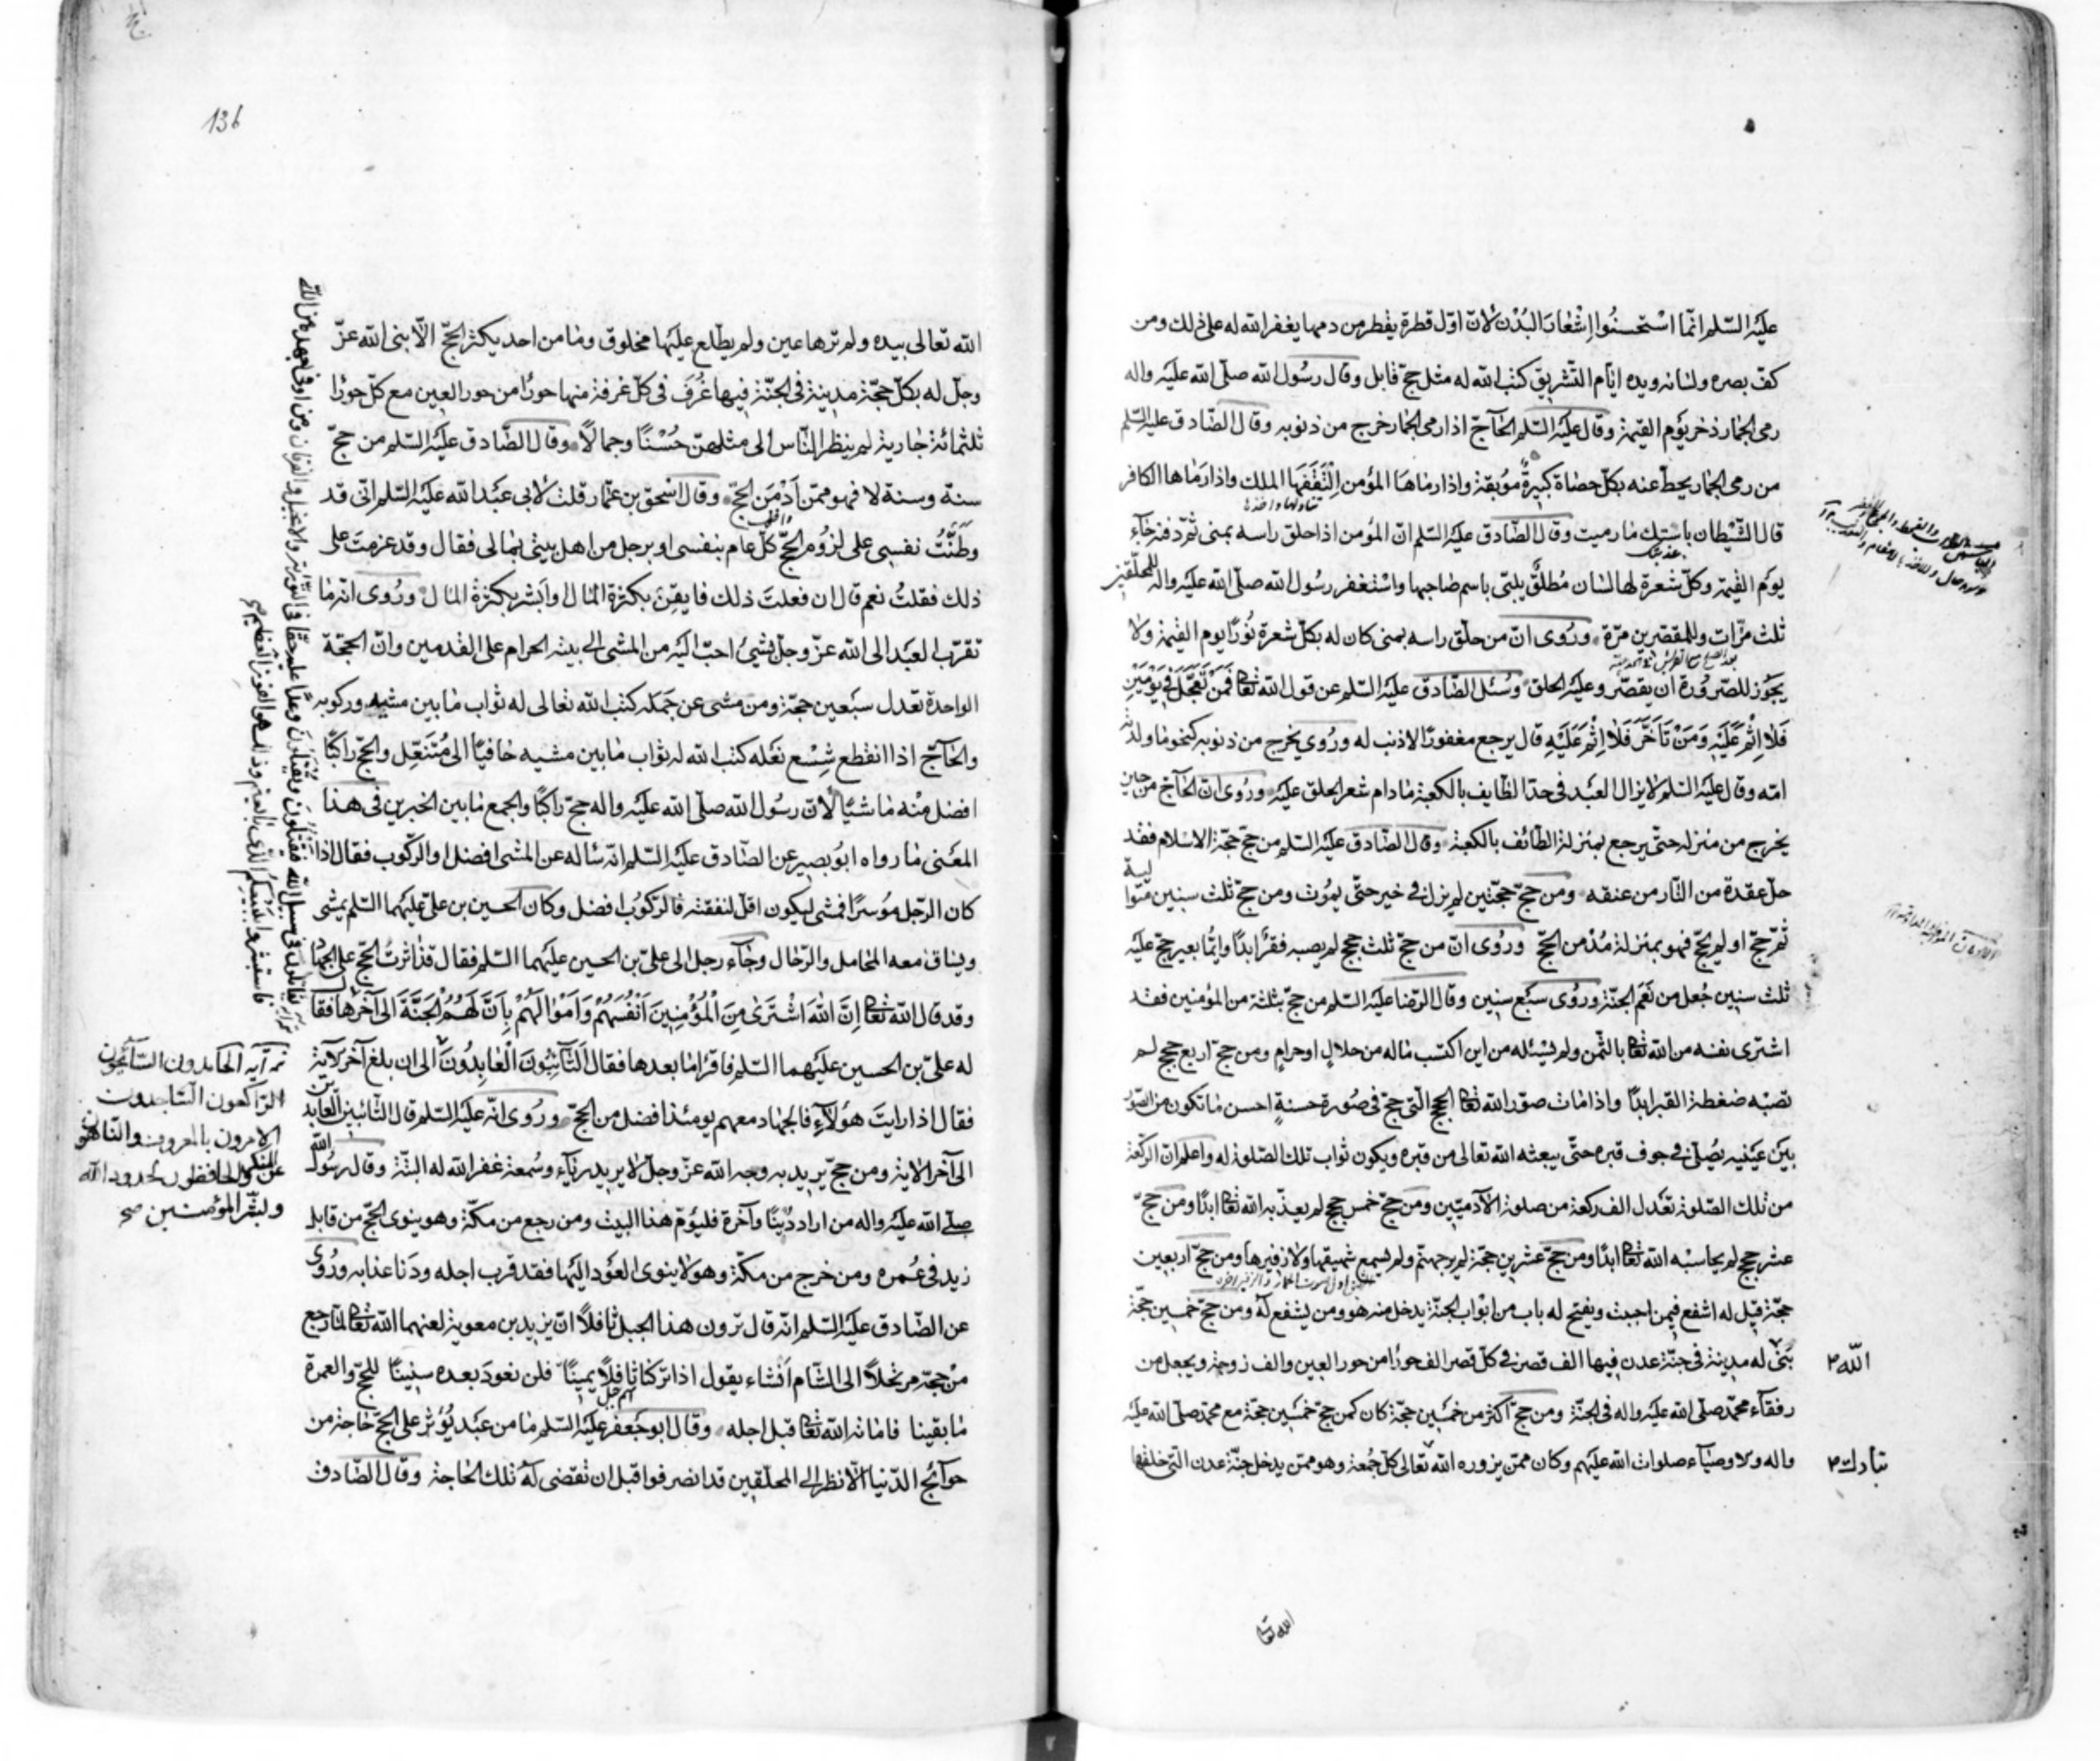 عليه السّلم انّما اسْتحسنُوا اِشْعَارَ البُدْن لانّ اوّل قطرة يقطر من دمها يغفر الله له على ذلك ومن
كفّ بصره ولسانه ويده ايّام التّشريق كتب الله له مثل حجّ قابل وقال رسُول الله صلّى الله عليه واله
رمى الجمار ذخر يوم القيمة وقال عليه السّلم الحاجّ اذا رمى الجمار خرج من ذنوبه وقال الصّادق عليه السّلم
من رمى الجمار يحطّ عنه بكلّ حصاة كبيرةٌ مُوبقة واذا رماها المؤمن اِلْتَقَفَهَا الملك واذا رَماها الكافر
قال الشّيطان باستك ما رميت وقال الصّادق عليه السّلم انّ المؤمن اذا حلق راسه بمنى ثمّ دفنه جآء
يوم القيمة وكلّ شعرة لها لسان مُطلَقٌ يلبّى باسم صاحبها واسْتغفر رسُول الله صلّى الله عليه واله للمحلّقين
ثلث مرّات وللمقصّرين مرّة وروى انّ من حلق راسه بمنى كان له بكلّ شعرة نُورًا يوم القيمة ولا
يجُوز للصّرُورة ان يقصّر وعليه الحلق وسُئل الصّادق عليه السّلم عن قول الله تعا فَمَنْ تَعَجَّلَ فِي يَوْمَيْنِ
فَلَا اِثْمَ عَلَيْهِ وَمَنْ تَاَخَّرَ فَلَا اِثْمَ عَلَيْهِ قال يرجع مغفورًا لا ذنب له ورُوى يخرج من ذنوبه كنحو ما ولدته
امّه وقال عليه السّلم لا يزال العبد فى حدّ الطّايف بالكعبة مادام شعر الحلق عليه ورُوى انّ الحاجّ من حين
يخرج من منزله حتّى يرجع بمنزلة الطّائف بالكعبة وقال الصّادق عليه السّلم من حجّ حجّة الاسلام فقد
حلّ عقدة من النّار من عنقه ومن حجّ حجّتين لم يزل فى خير حتّى يمُوت ومن حجّ ثلث سنين متوالية
ثمّ حجّ او لم يحجّ فهو بمنزلة مُدْمن الحجّ ورُوى انّ من حجّ ثلث حجج لم يصبه فقر ابدًا وايّما بعير حجّ عليه
ثلث سنين جُعل من نَعَم الجنّة ورُوى سبع سنين وقال الرّضا عليه السّلم من حجّ بثلثة من المؤمنين فقد
اشترى نفسه من الله تعا بالثّمن ولم يسْئله من اين اكتسب ماله من حلالٍ او حرامٍ ومن حجّ اربع حجج لم
تصبْه ضغطة القبر ابدًا واذا مات صوّر الله تعا الحجج الّتى حجّ فى صُورة حسنةٍ احسن ما تكون من الصّور
بين عينيه يُصلّى فى جوف قبره حتّى يبعثه الله تعالى من قبره ويكون ثواب تلك الصّلوة له واعلم انّ الرّكعة
من تلك الصّلوة تعدل الف ركعة من صلوة الآدميّين ومن حجّ خمس حجج لم يعذّبه الله تعا ابدًا ومن حجّ
عشر حجج لم يحاسبْه الله تعا ابدًا ومن حجّ عشرين حجّة لم ير جهنّم ولم يسمع شهيقها ولا زفيرها ومن حجّ اربعين
حجّة قيل له اشفع فيمن احببت ويفتح له باب من ابْواب الجنّة يدخل منه هو ومن يشفع له ومن حجّ خمسين حجّة
بَنى له مدينة فى جنّة عدن فيها الف قصر فى كلّ قصر الف حورًا من حور العين والف زوجة ويجعل من
الله
رفقآء محمّد صلّى الله عليه واله فى الجنّة ومن حجّ اكثر من خمسين حجّة كان كمن حجّ خمسين حجّة مع محمّد صلّى الله عليه
واله والاوصيآء صلوات الله عليهم وكان ممّن يزوره الله تعالى كلّ جُمعة وهو ممّن يدخل جنّة عدن الّتى خلقها
تبارك
الله تعا
136
الله تعالى بيده ولم ترها عين ولم يطّلع عليها مخلوق وما من احد يكثر الحجّ الّا بنى الله عزّ
وجلّ له بكلّ حجّة مدينة فى الجنّة فيها غُرَف فى كلّ غرفة منها حورًا من حور العين مع كلّ حورًا
ثلثمائة جارية لم ينظر النّاس الى مثلهنّ حُسْنًا وجمالًا وقال الصّادق عليه السّلم من حجّ
سنة وسنة لا فهو ممّن اَدْمَن الحجّ وقال اسْحق بن عمّار قلت لابى عبد الله عليه السّلم انّى قد
وطّنْتُ نفسى على لزُوم الحجّ كلّ عام بنفسى او برجل من اهل بيتى بمالى فقال وقد عزمتَ على
ذلك فقلتُ نعم قال ان فعلتَ ذلك فايقِنْ بكثرة المال او ابْشر بكثرة المال ورُوى انّه ما
تقرّب العبد الى الله عزّ وجلّ بشىء احبّ اليه من المشى الى بيته الحرام على القدمين وانّ الحجّة
الواحدة تعدل سبعين حجّة ومن مشى عن جَمَله كتب الله تعالى له ثواب ما بين مشيه وركوبه
والحاجّ اذا انقطع شِسْع نعله كتب الله له ثواب ما بين مشيه حافيًا الى مُتنعّل والحجّ راكبًا
افضل منْه ماشيًا لانّ رسُول الله صلّى الله عليه واله حجّ راكبًا والجمع ما بين الخبرين فى هذا
المعنى ما رواه ابوُ بصير عن الصّادق عليه السّلم انّه ساله عن المشى افضل او الرّكوب فقال اذا
كان الرّجل مُوسرًا فمشى ليكون اقلّ لنفقته فالرّكوبُ افضل وكان الحسين بن علىّ عليهما السّلم يمشى
ويساق معه المحامل والرّحال وجآء رجل الى علىّ بن الحسين عليهما السّلم فقال قد اثرتَ الحجّ على الجهاد
وقد قال الله تعا اِنَّ اللهَ اشْتَرَىٰ مِنَ الْمُؤْمِنِينَ اَنْفُسَهُمْ وَاَمْوَالَهُمْ بِاَنَّ لَهُمُ الْجَنَّةَ الى آخرها فقال
له علىّ بن الحسين عليهما السّلم فاقرا ما بعدها فقال اَلتَّآئِبُونَ الْعَابِدُونَ الى ان بلغ آخر الآية
فقال اذا رايتَ هؤلآء فالجهاد معهم يومئذ افضل من الحجّ ورُوى انّه عليه السّلم قال التّآئبين العابدين
الى آخر الاية ومن حجّ يريد به وجه الله عزّ وجلّ لا يريد به ريآء وسُمعة غفر الله له البتّة وقال رسُول الله
صلّى الله عليه واله من اراد دُنْيًا وآخرة فليؤمّ هذا البيت ومن رجع من مكّة وهو ينوى الحجّ من قابل
زيد فى عُمره ومن خرج من مكّة وهو لا ينوى العوْد اليها فقد قرب اجله ودَنا عذابه ورُوى
عن الصّادق عليه السّلم انّه قال ترون هذا الجبل ثافلًا انّ يزيد بن معوية لعنهما الله تعا لمّا رجع
منْ حجّه مرتحلًا الى الشّام اَنْشاء يقول اذا تركنا ثافلًا يمينًا فلن نعودَ بعده سنينًا للحجّ والعمرة
ما بقينا فاماته الله تعا قبل اجله وقال ابو جَعفر عليه السّلم ما من عبد يُؤثر على الحجّ حاجة من
حوآئج الدّنيا الّا نظر الى المحلّقين قد انصرفوا قبل ان تقضى لهُ تلك الحاجة وقال الصّادق
يقاتلون فى سبيل الله فيقتلون ويقتلون وعدًا عليه حقًّا فى التوراة والانجيل والقرآن ومن اوفى بعهده من الله
فاستبشروا ببيعكم الّذى بايعتم به وذلك هو الفوز العظيم صح
الحامدون السّآئحون
الرّاكعون السّاجدون
الآمرون بالمعروف والنّاهون
عن المنكر والحافظون لحدود الله
وبشّر المؤمنين صح